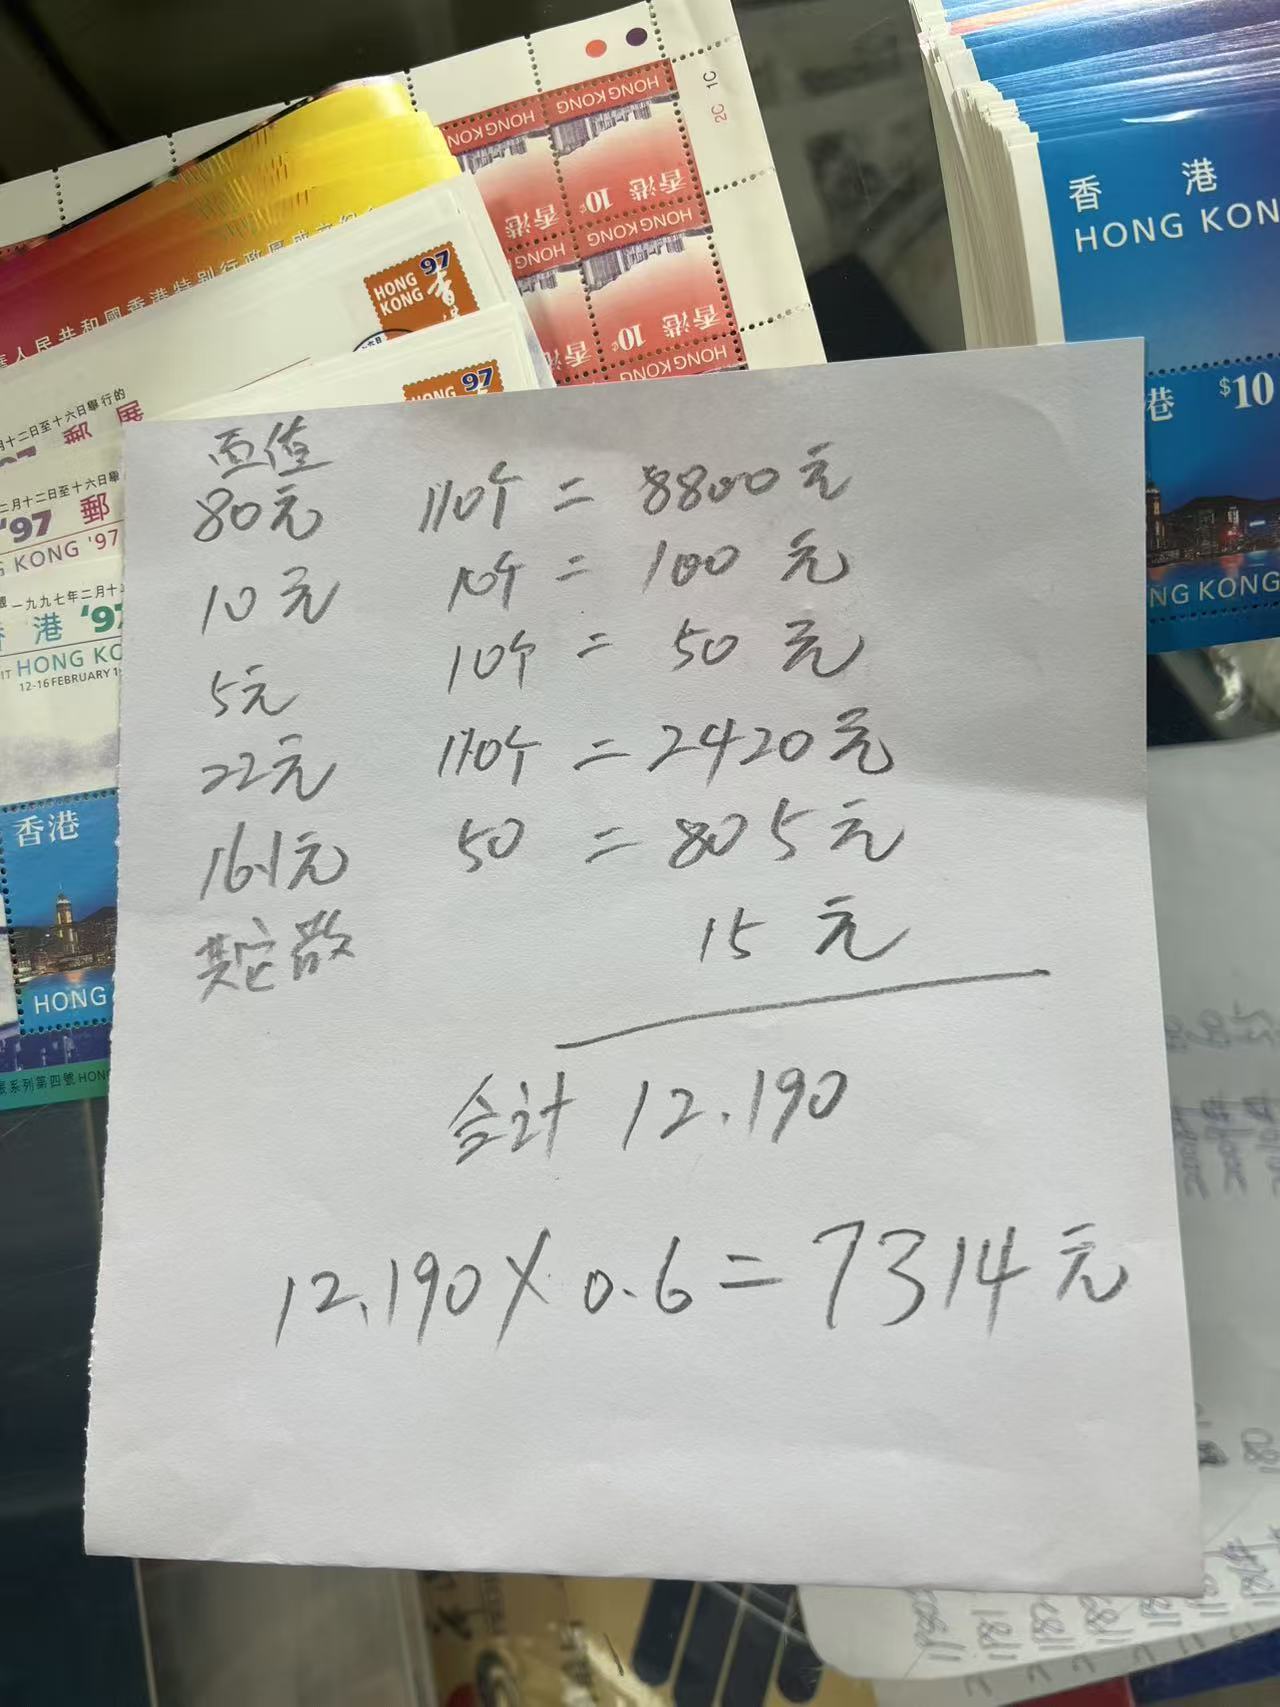 2C 1C
HONG KONG
HONG KON
香港 10¢
香港 10¢
香港
HONG KONG
HONG KONG
香港 10¢
香港
HONG KONG
香港
HONG KON
人民共和國香港特別行政區成立紀
HONG KONG 97
HONG 97
月十二日至十六日舉行的
97 郵展
二月十二日至十六日舉
'97 郵
G KONG '97
一九九七年二月十
港 '97
HONG KO
12-16 FEBRUARY 1
香港
HONG
張系列第四號 HON
港 $10
NG KONG
面值
80元 110个 = 8800元
10元 10个 = 100元
5元 10个 = 50元
22元 110个 = 2420元
16.1元 50 = 805元
其它散 15元
合计 12.190
12.190 X 0.6 = 7314元